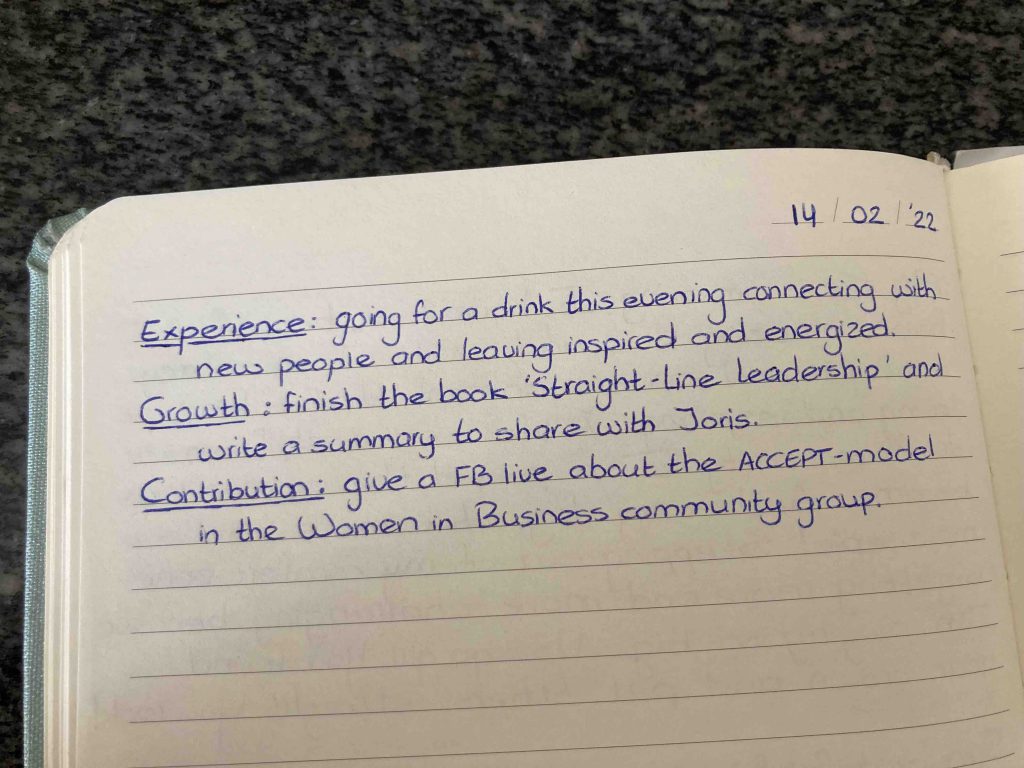 14 / 02 / '22
Experience: going for a drink this evening connecting with
new people and leaving inspired and energized.
Growth: finish the book 'Straight-Line leadership' and
write a summary to share with Joris.
Contribution: give a FB live about the ACCEPT-model
in the Women in Business community group.